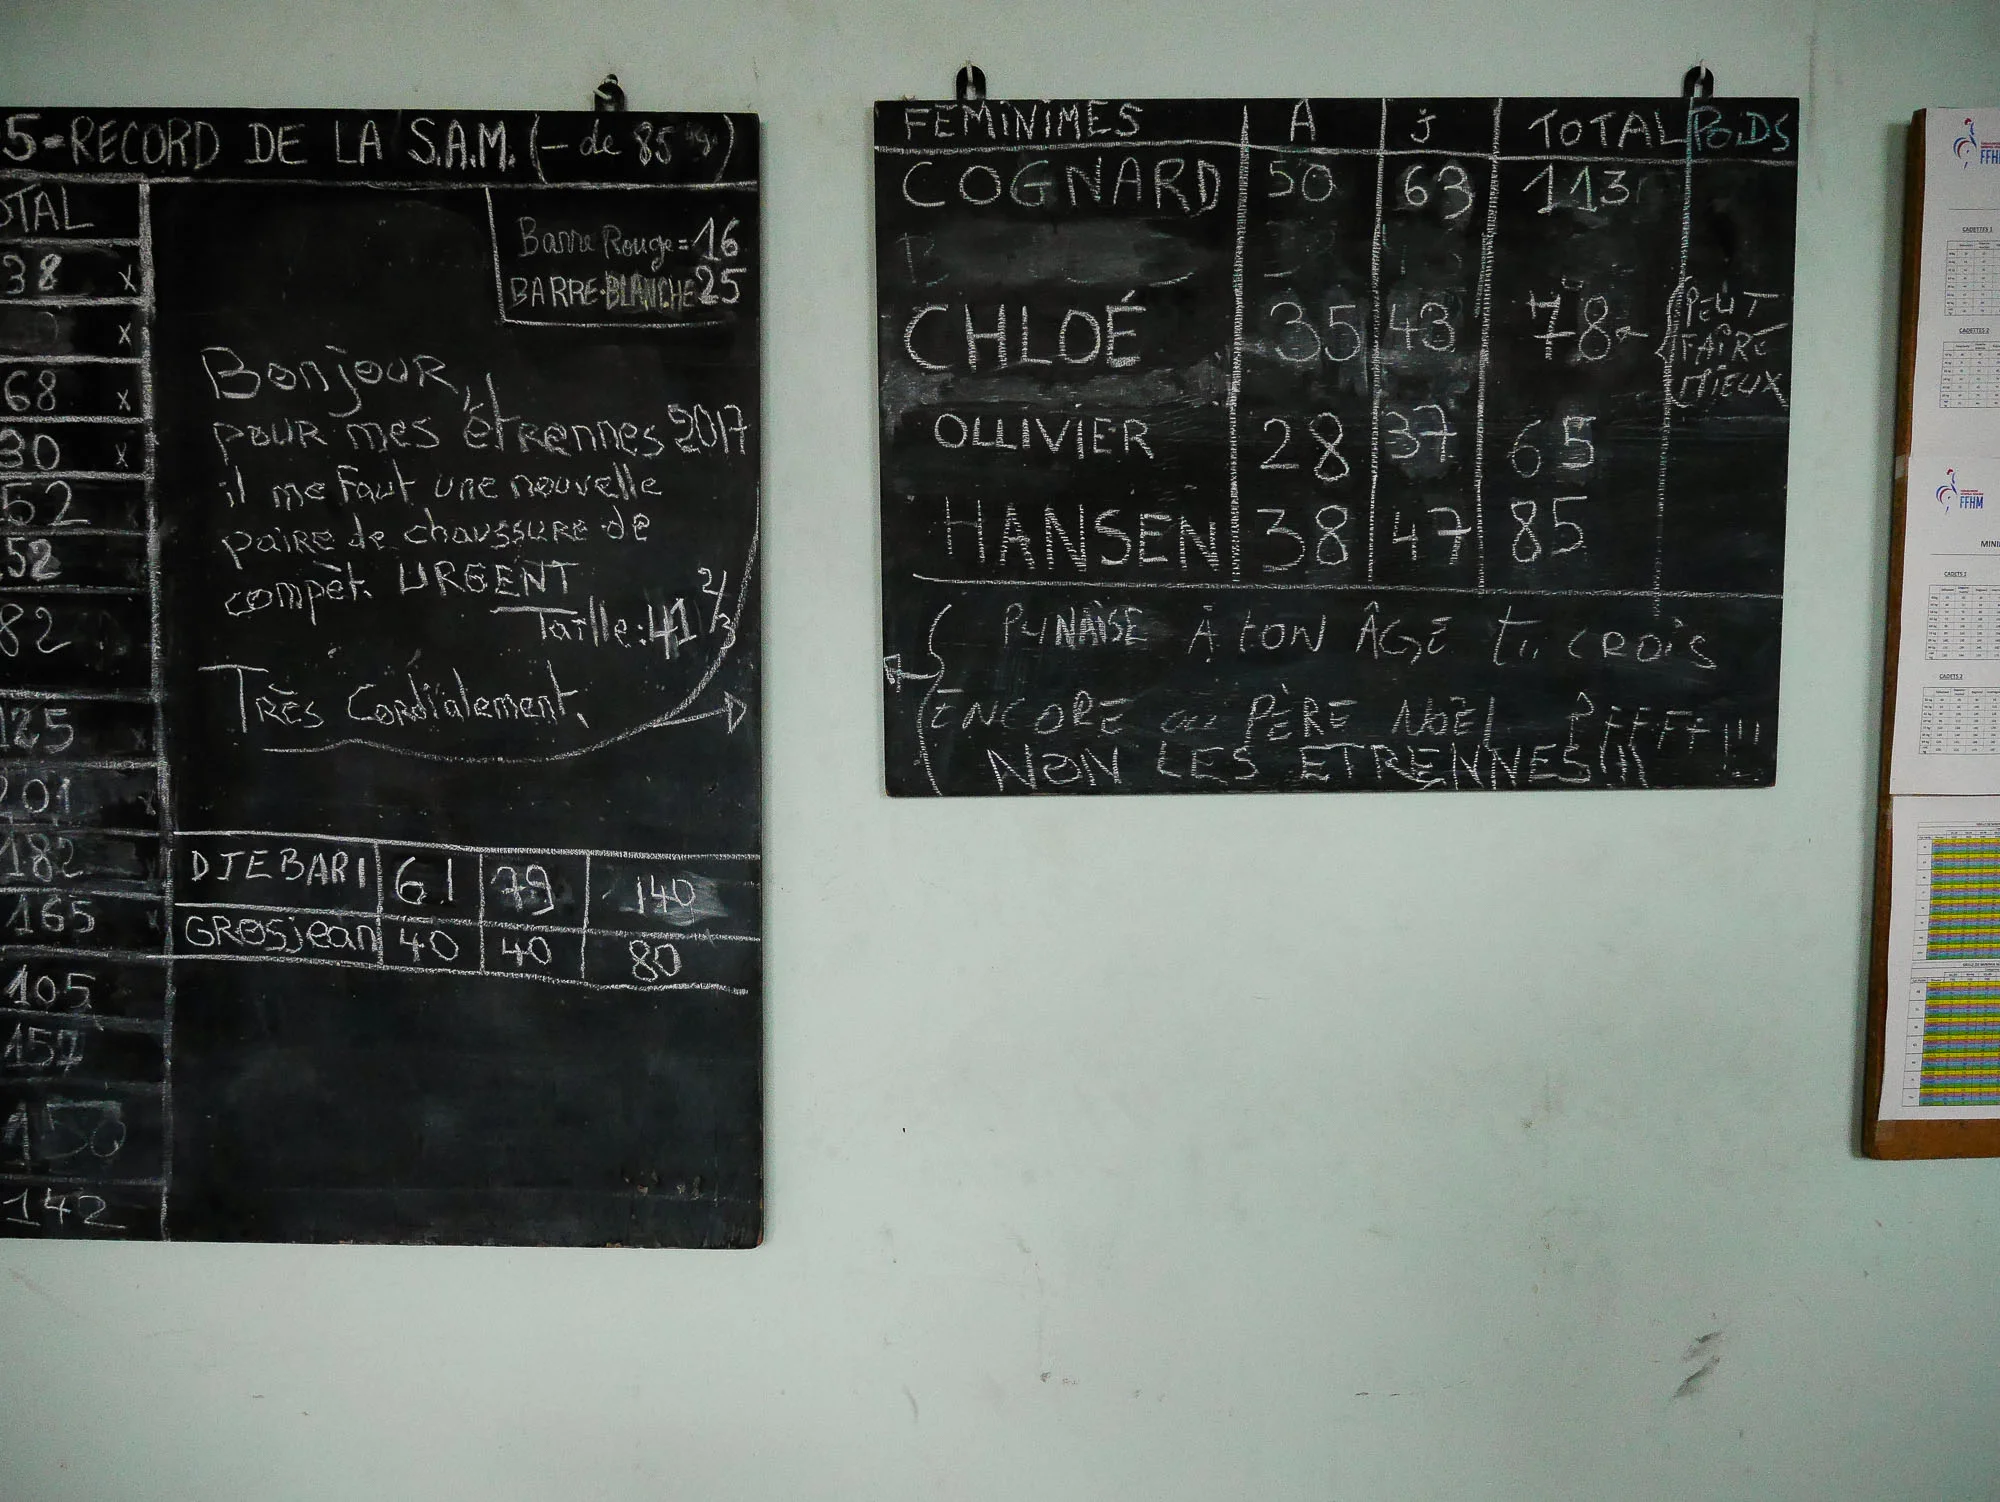 5=RECORD DE LA S.A.M. (- de 85 kg)
OTAL
38 x
x
68 x
30 x
52
52
82
125
201 x
182
165
105
157
150
142
Barre Rouge = 16
BARRE-BLANCHE 25
Bonjour,
pour mes étrennes 2017
il me faut une nouvelle
paire de chaussure de
compèt. URGENT
Taille: 41 2/3
Très Cordialement,
DJEBARI 61 79 140
GROSjean 40 40 80
FEMINIMES A J TOTAL POIDS
COGNARD 50 63 113
CHLOÉ 35 43 78
PEUT
FAIRE
MIEUX
OLLIVIER 28 37 65
HANSEN 38 47 85
PUNAISE À TON ÂGE tu CROIS
ENCORE au PÈRE NOËL PFFFF!!!
NON LES ETRENNES!!!
FFH
CADETTES 1
CADETTES 2
FFHM
MINI
CADETS 1
CADETS 2